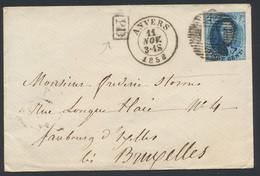 PD
ANVERS
11
NOV.
2-4S
1858
Monsieur Frédéric Storms
Rue Longue Haie N° 4
Faubourg d'Ixelles
lès Bruxelles